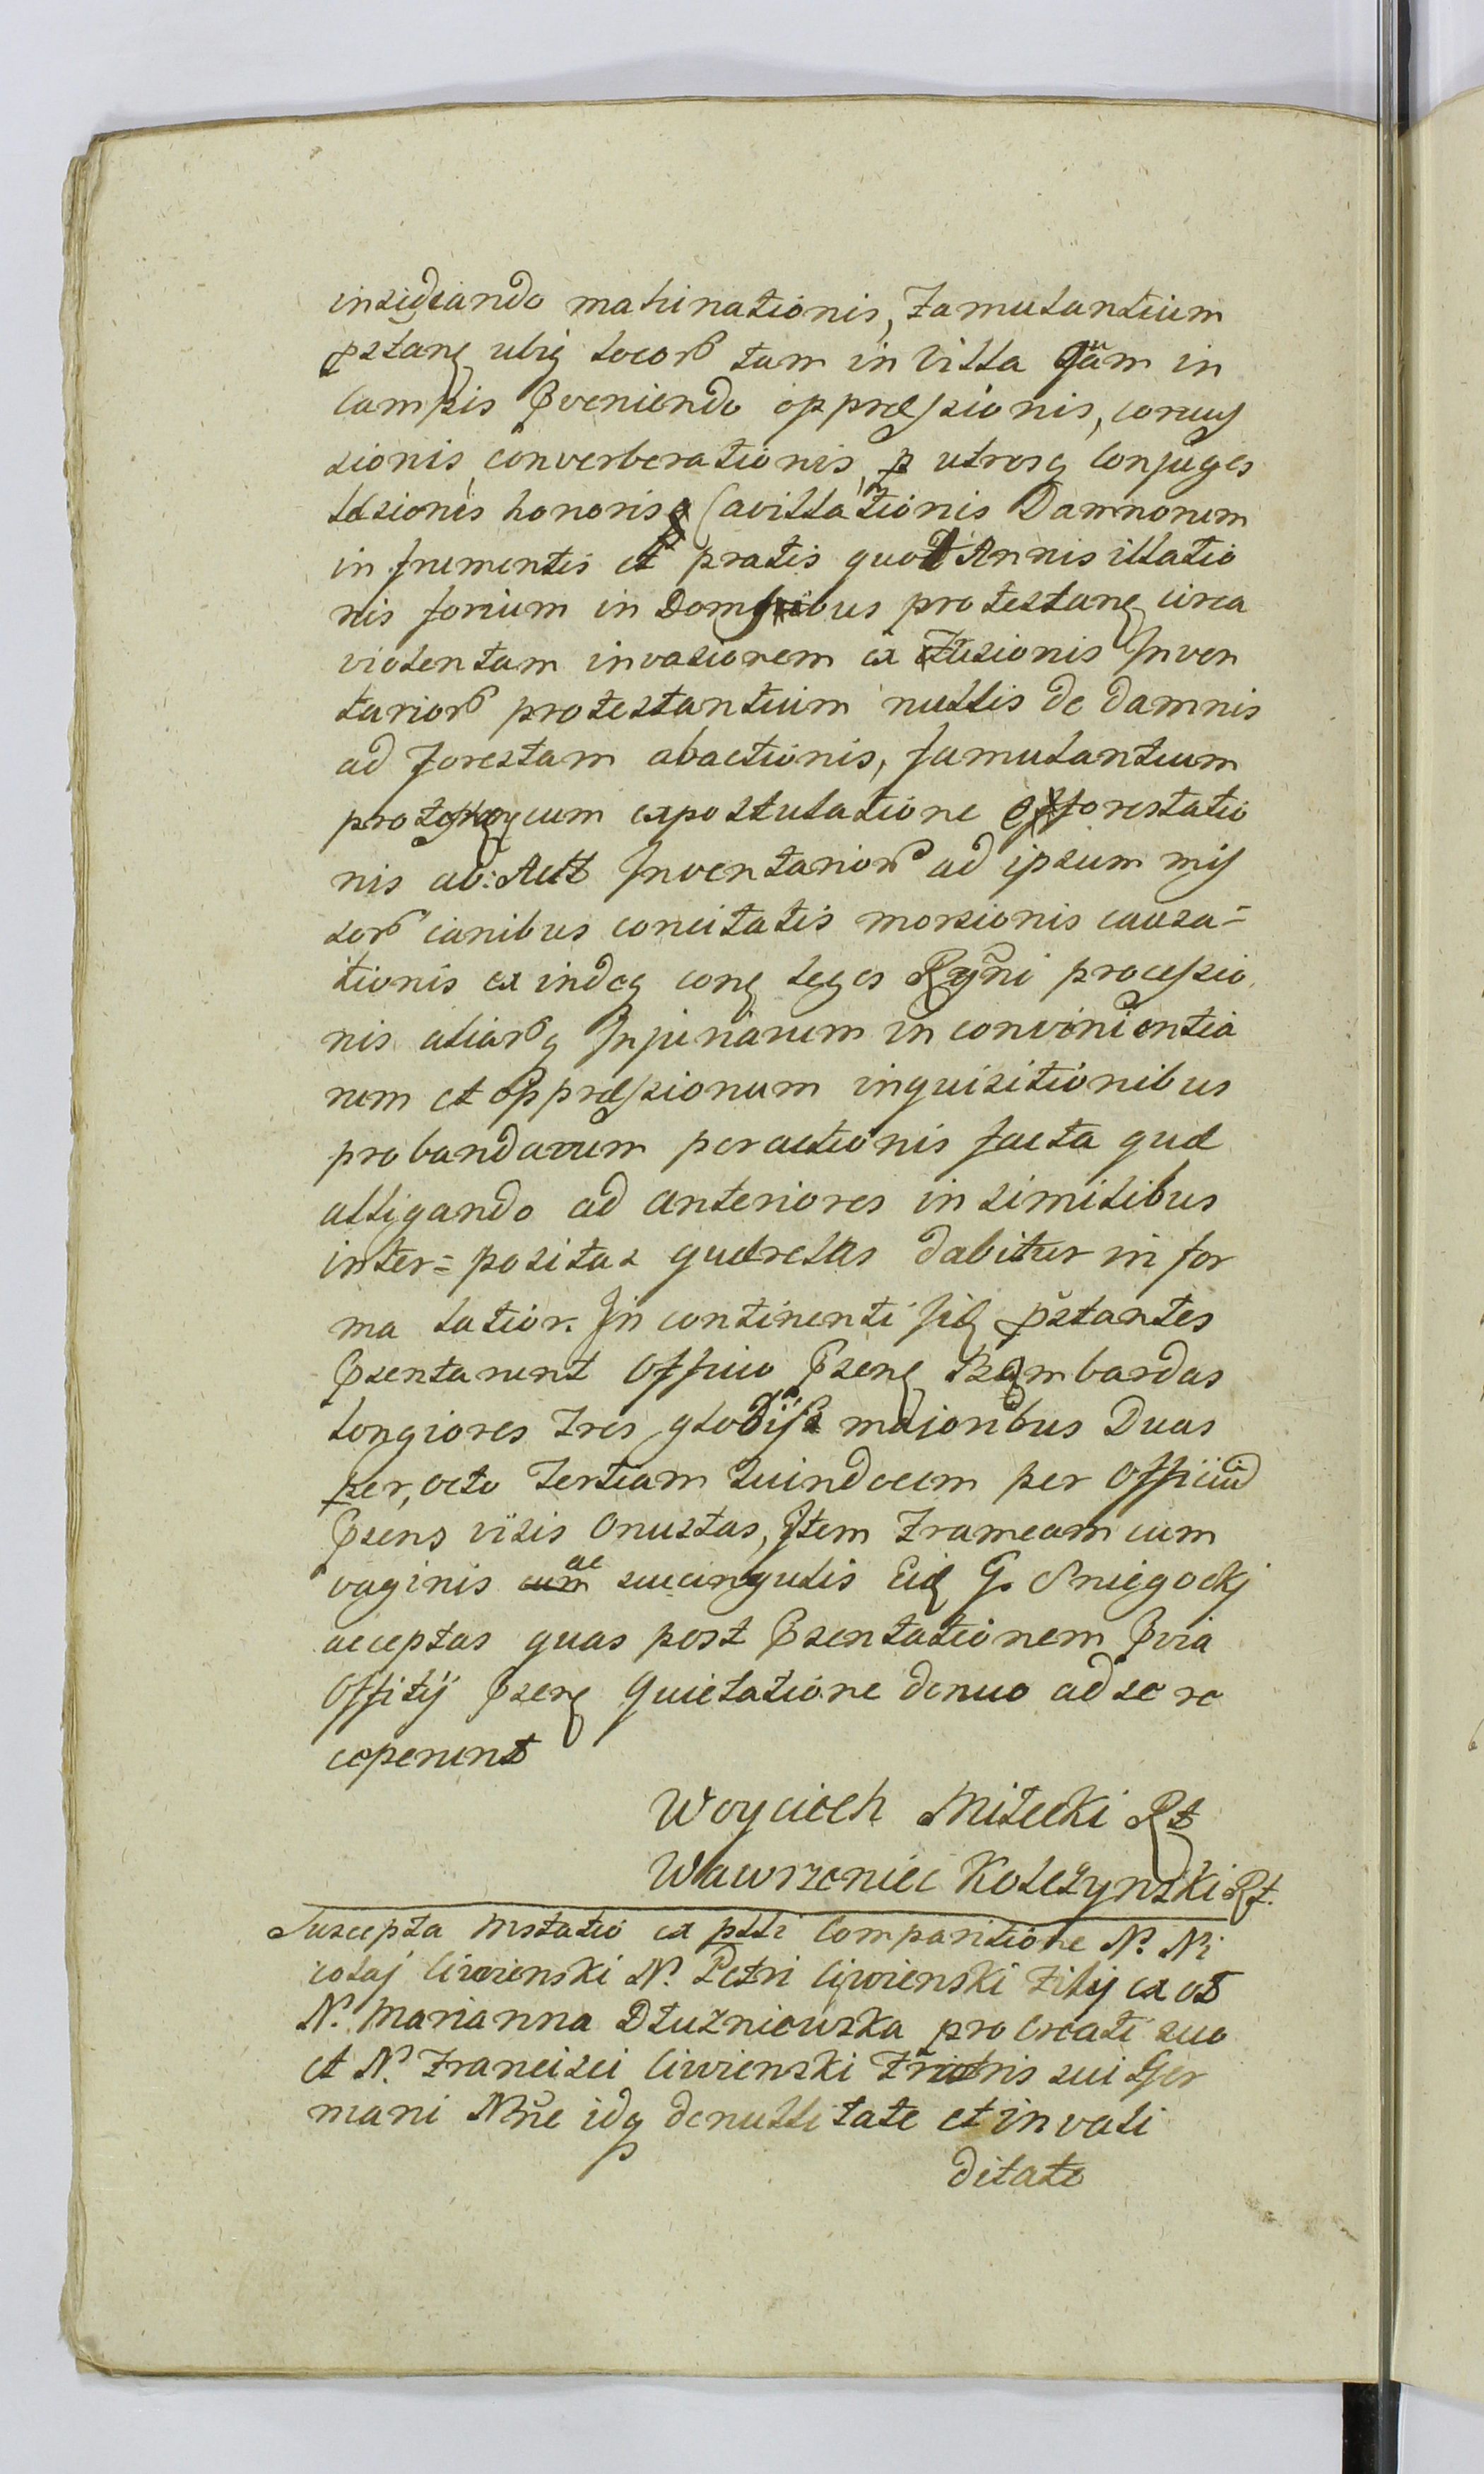 insidiando mahinationis, Famulantium
pstang ubiq locorb tam in Villa Qũam in
Campis pveniendo oppræssionis, concus
sionis, converberationis, p utrosq Conjuges
læsionis honoris Cavillationis Damnorum
in frumentis et pratis quot Annis illatio
nis forium in Domibus protestang circa
violentam invasionem ex Fusionis Inven
tariorb protestantium nullis de damnis
ad Forestam abactionis, famulantium
cum expostulatione exforestatio
nis ab: Actt Inventariorb ad ipsum mis
sorb canibus concitatis morsionis causa=
tionis ex indeq cong leges Rgñi processio
nis aliarbq Injuriarum in convinientia
rum et oppræssionum inquisitionibus
probandarum peractionis facta quæ
alligando ad anteriores in similibus
inter=positas quærelas dabitur in for
ma latior. In continenti siq pstantes
psentarunt Officio pseng Bombardas
longiores tres globis majoribus Duas
per, octo Tertiam Quindecem per Officiũ
psens visis Onustas, Item Frameam cum
vaginis cum ac succingulis Eid G. Sniegockj
acceptas quas post psentationem pvia
Offitij pseng Quietatione denuo ad se re
ceperunt
Woyciech Milecki Rt
Wawrzeniec Koleżynski Rt.
Suscepta Mstatio ex pstti Comparitione N. Ni
colaj Ciwienski N. Petri Ciwienski Filij ex ot
N. Marianna Dłużniewska proCreati suo
et N. Francisci Ciwienski Fratris sui Ger
mani Nñe idq de nullitate et invali
ditate